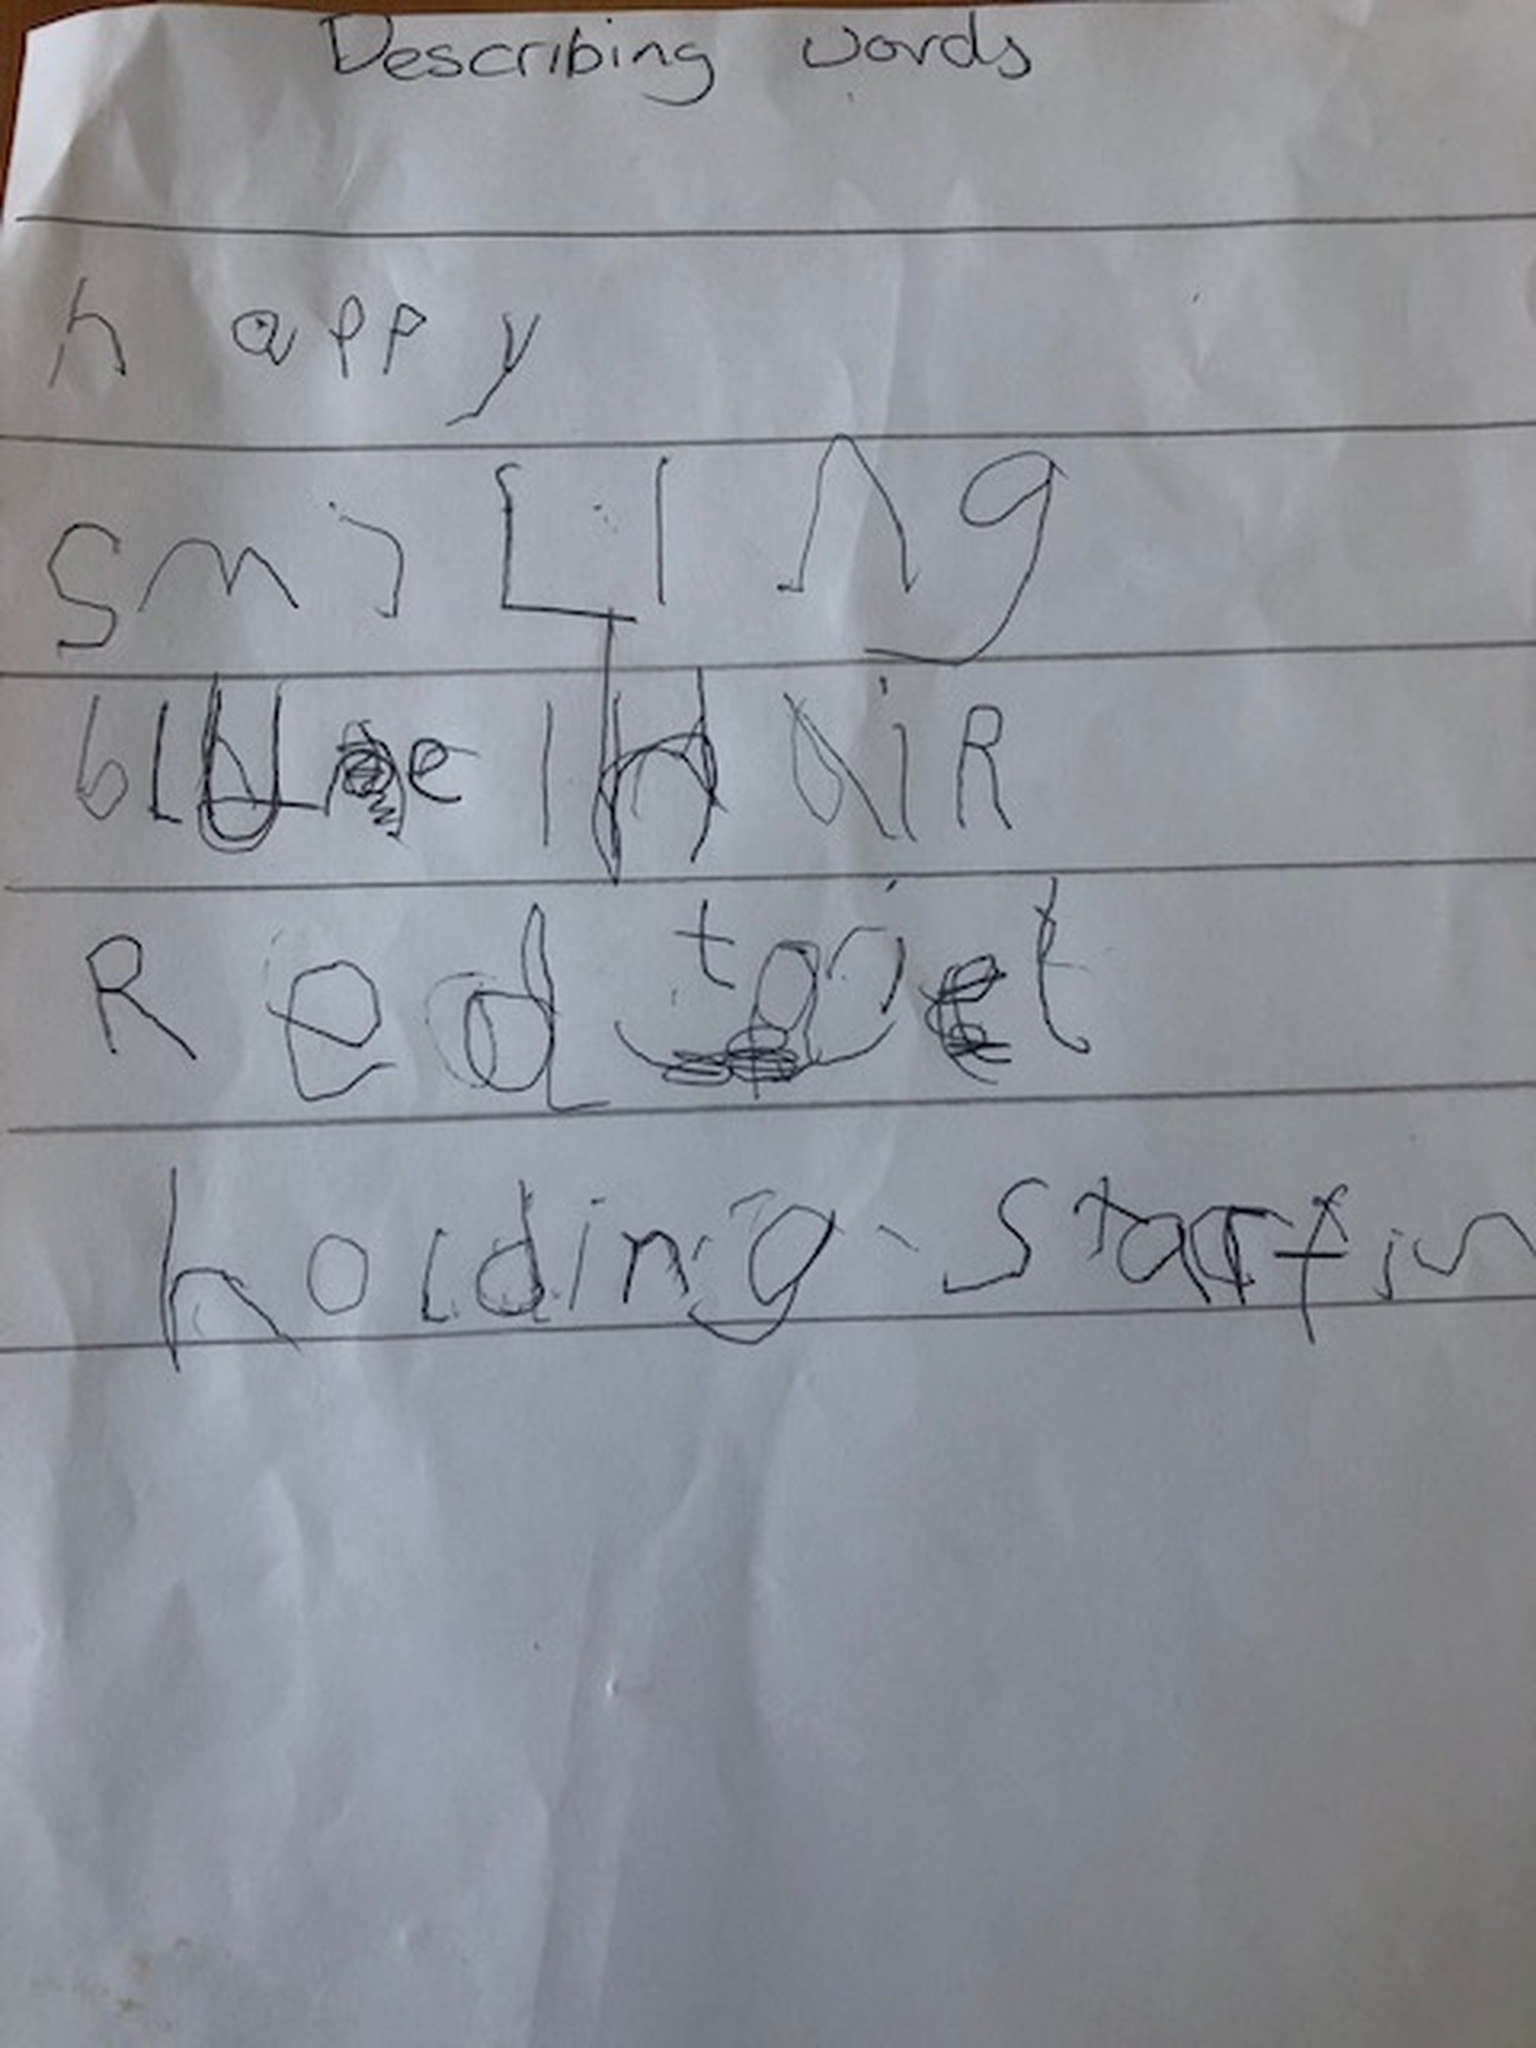 Describing words
happy
smiling
blue hair
Red
holding starfin